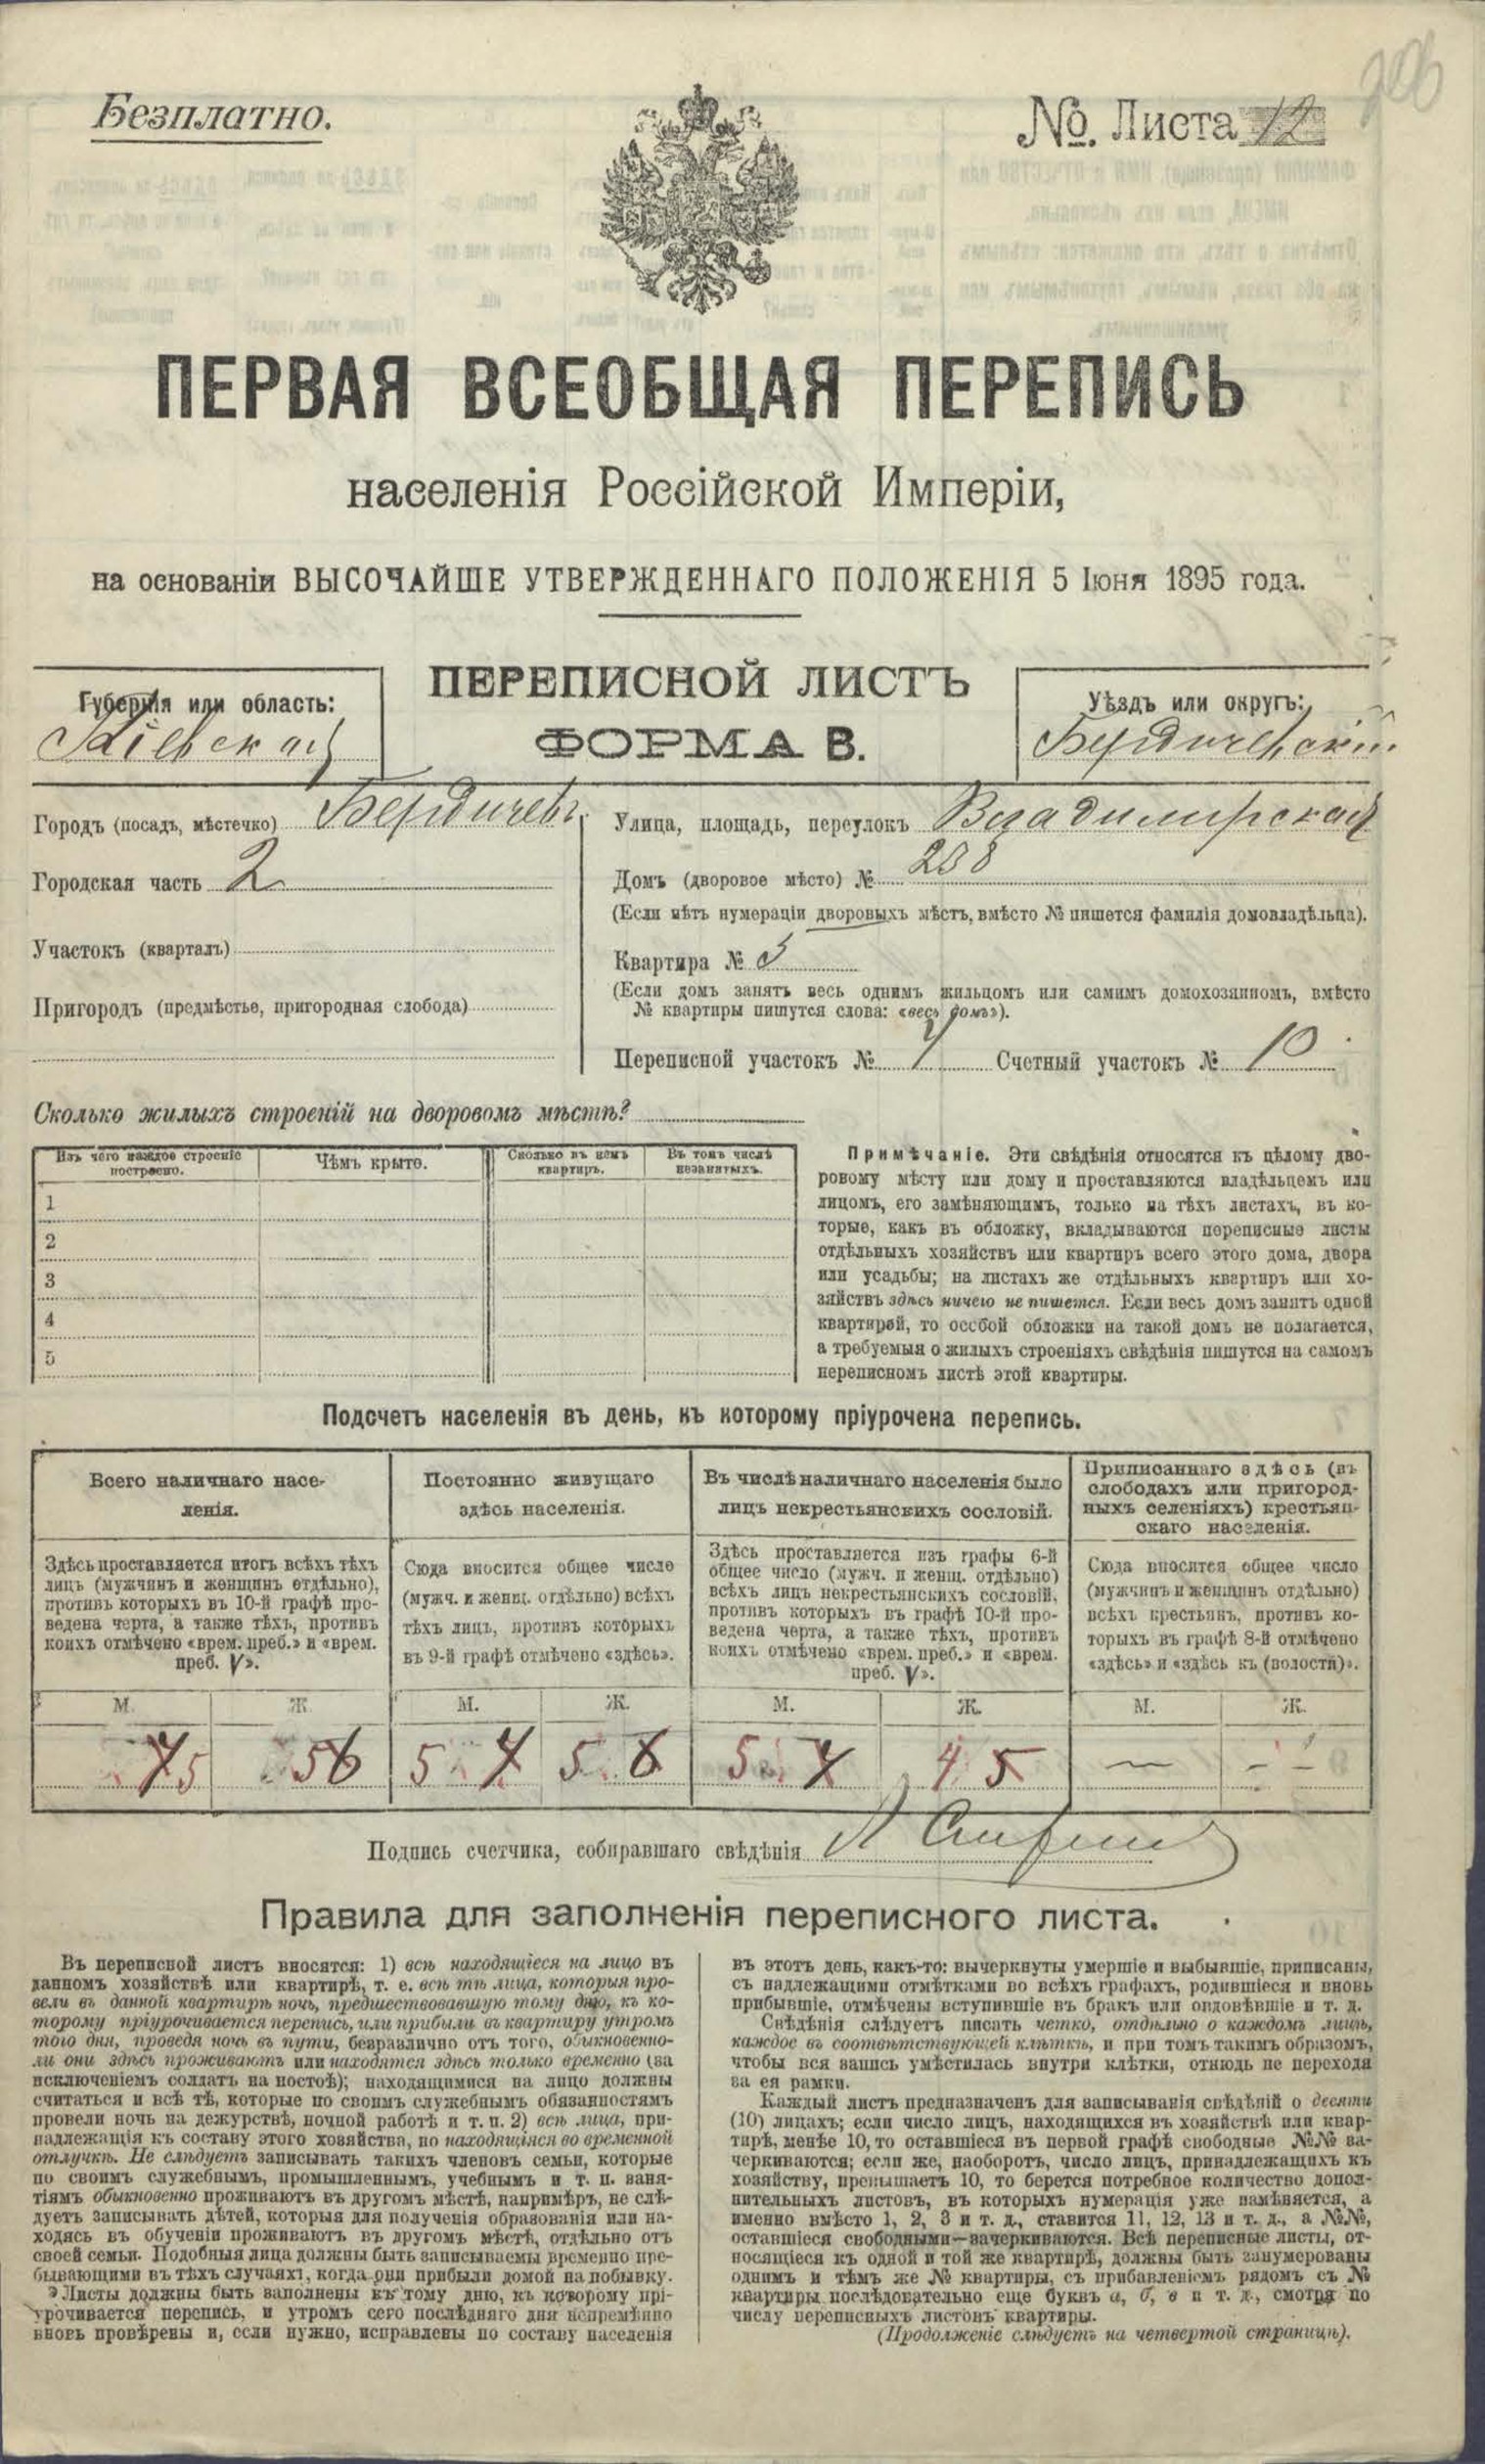 Безплатно.
№. Листа 12
206
ПЕРВАЯ ВСЕОБЩАЯ ПЕРЕПИСЬ
населенія Россійской Имперіи,
на основаніи ВЫСОЧАЙШЕ УТВЕРЖДЕННАГО ПОЛОЖЕНІЯ 5 Іюня 1895 года.
Губернія или область:
Кіевская
ПЕРЕПИСНОЙ ЛИСТЪ
ФОРМА В.
Уѣздъ или округъ:
Бердичевскій
Городъ (посадъ, мѣстечко) Бердичевъ
Городская часть 2
Участокъ (кварталъ)
Пригородъ (предмѣстье, пригородная слобода)
Улица, площадь, переулокъ Владимирская
Домъ (дворовое мѣсто) № 238
(Если нѣтъ нумераціи дворовыхъ мѣстъ, вмѣсто № пишется фамилія домовладѣльца).
Квартира №
(Если домъ занятъ весь однимъ жильцомъ или самимъ домохозяиномъ, вмѣсто
№ квартиры пишутся слова: «весь домъ»).
Переписной участокъ № Счетный участокъ № 10
Сколько жилыхъ строеній на дворовомъ мѣстѣ?
Изъ чего каждое строеніе
построено.
Чѣмъ крыто.
Сколько въ немъ
квартиръ.
Въ томъ числѣ
незанятыхъ.
1
2
3
4
5
Примѣчаніе. Эти свѣдѣнія относятся къ цѣлому дво-
ровому мѣсту или дому и проставляются владѣльцемъ или
лицомъ, его замѣняющимъ, только на тѣхъ листахъ, въ ко-
торые, какъ въ обложку, вкладываются переписные листы
отдѣльныхъ хозяйствъ или квартиръ всего этого дома, двора
или усадьбы; на листахъ же отдѣльныхъ квартиръ или хо-
зяйствъ здѣсь ничего не пишется. Если весь домъ занятъ одной
квартирой, то особой обложки на такой домъ не полагается,
а требуемыя о жилыхъ строеніяхъ свѣдѣнія пишутся на самомъ
переписномъ листѣ этой квартиры.
Подсчетъ населенія въ день, къ которому пріурочена перепись.
Всего наличнаго насе-
ленія.
Постоянно живущаго
здѣсь населенія.
Въ числѣ наличнаго населенія было
лицъ некрестьянскихъ сословій.
Приписаннаго здѣсь (въ
слободахъ или пригород-
ныхъ селеніяхъ) крестьян-
скаго населенія.
Здѣсь проставляется итогъ всѣхъ тѣхъ
лицъ (мужчинъ и женщинъ отдѣльно),
противъ которыхъ въ 10-й графѣ про-
ведена черта, а также тѣхъ, противъ
коихъ отмѣчено «врем. преб.» и «врем.
преб. V».
Сюда вносится общее число
(мужч. и женщ. отдѣльно) всѣхъ
тѣхъ лицъ, противъ которыхъ
въ 9-й графѣ отмѣчено «здѣсь».
Здѣсь проставляется изъ графы 6-й
общее число (мужч. и женщ. отдѣльно)
всѣхъ лицъ некрестьянскихъ сословій,
противъ которыхъ въ графѣ 10-й про-
ведена черта, а также тѣхъ, противъ
коихъ отмѣчено «врем. преб.» и «врем.
преб. V».
Сюда вносится общее число
(мужчинъ и женщинъ отдѣльно)
всѣхъ крестьянъ, противъ ко-
торыхъ въ графѣ 8-й отмѣчено
«здѣсь» и «здѣсь къ (волости)».
М. Ж. М. Ж. М. Ж. М. Ж.
4 5 5 6 5 4 5 6 5 4 4 5 — —
Подпись счетчика, собиравшаго свѣдѣнія
Правила для заполненія переписного листа.
Въ переписной листъ вносятся: 1) всѣ находящіеся на лицо въ
данномъ хозяйствѣ или квартирѣ, т. е. всѣ тѣ лица, которыя про-
вели въ данной квартирѣ ночь, предшествовавшую тому дню, къ ко-
торому пріурочивается перепись, или прибыли въ квартиру утромъ
того дня, проведя ночь въ пути, безразлично отъ того, обыкновенно-
ли они здѣсь проживаютъ или находятся здѣсь только временно (за
исключеніемъ солдатъ на постоѣ); находящимися на лицо должны
считаться и всѣ тѣ, которые по своимъ служебнымъ обязанностямъ
провели ночь на дежурствѣ, ночной работѣ и т. п. 2) всѣ лица, при-
надлежащія къ составу этого хозяйства, но находящіяся во временной
отлучкѣ. Не слѣдуетъ записывать такихъ членовъ семьи, которые
по своимъ служебнымъ, промышленнымъ, учебнымъ и т. п. заня-
тіямъ обыкновенно проживаютъ въ другомъ мѣстѣ, напримѣръ, не слѣ-
дуетъ записывать дѣтей, которыя для полученія образованія или на-
ходясь въ обученіи проживаютъ въ другомъ мѣстѣ, отдѣльно отъ
своей семьи. Подобныя лица должны быть записываемы временно пре-
бывающими въ тѣхъ случаяхъ, когда они прибыли домой на побывку.
Листы должны быть заполнены къ тому дню, къ которому прі-
урочивается перепись, и утромъ сего послѣдняго дня непремѣнно
вновь провѣрены и, если нужно, исправлены по составу населенія
въ этотъ день, какъ-то: вычеркнуты умершіе и выбывшіе, приписаны,
съ надлежащими отмѣтками во всѣхъ графахъ, родившіеся и вновь
прибывшіе, отмѣчены вступившіе въ бракъ или овдовѣвшіе и т. д.
Свѣдѣнія слѣдуетъ писать четко, отдѣльно о каждомъ лицѣ,
каждое въ соотвѣтствующей клѣткѣ, и при томъ такимъ образомъ,
чтобы вся запись умѣстилась внутри клѣтки, отнюдь не переходя
за ея рамки.
Каждый листъ предназначенъ для записыванія свѣдѣній о десяти
(10) лицахъ; если число лицъ, находящихся въ хозяйствѣ или квар-
тирѣ, менѣе 10, то оставшіеся въ первой графѣ свободные №№ за-
черкиваются; если же, наоборотъ, число лицъ, принадлежащихъ къ
хозяйству, превышаетъ 10, то берется потребное количество допол-
нительныхъ листовъ, въ которыхъ нумерація уже измѣняется, а
именно вмѣсто 1, 2, 3 и т. д., ставится 11, 12, 13 и т. д., а №№,
оставшіеся свободными—зачеркиваются. Всѣ переписные листы, от-
носящіеся къ одной и той же квартирѣ, должны быть занумерованы
однимъ и тѣмъ же № квартиры, съ прибавленіемъ рядомъ съ №
квартиры послѣдовательно еще буквъ а, б, в и т. д., смотря по
числу переписныхъ листовъ квартиры.
(Продолженіе слѣдуетъ на четвертой страницѣ).